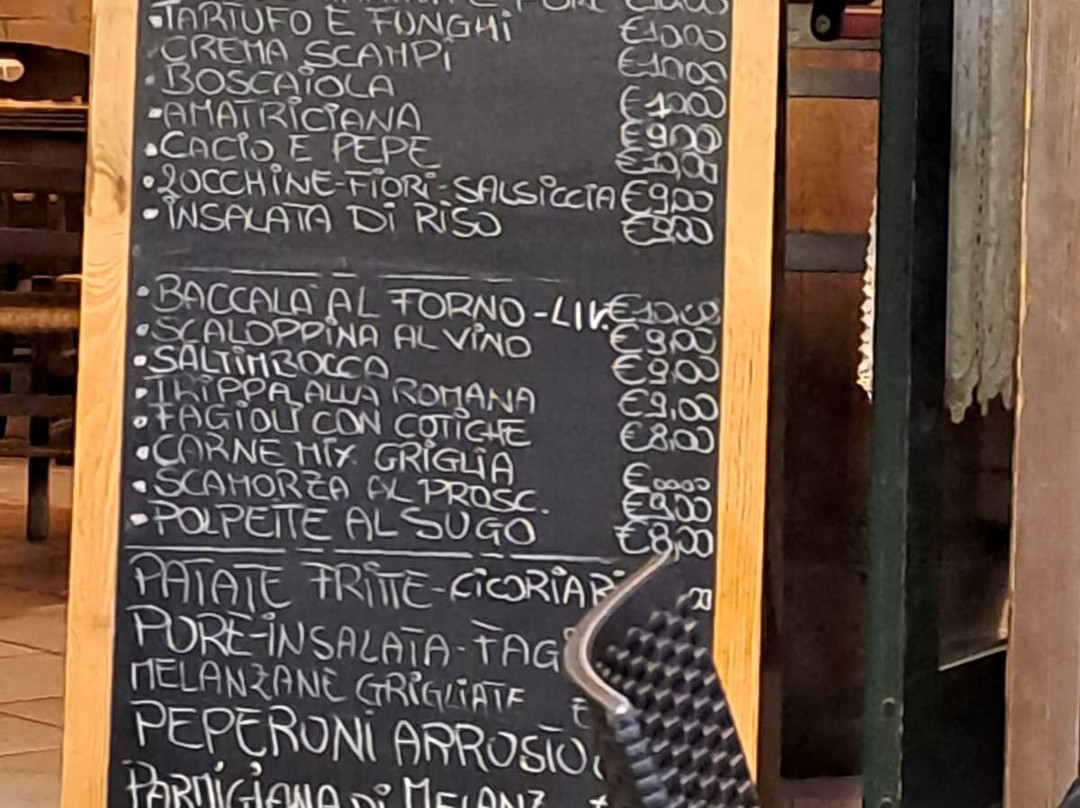 •TARTUFO E FUNGHI €10,00
CREMA SCAMPI €10,00
•BOSCAIOLA €10,00
•AMATRICIANA €9,00
•CACIO E PEPE €10,00
•ZOCCHINE-FIORI-SALSICCIA €9,00
•INSALATA DI RISO €8,00
•BACCALA' AL FORNO-LIV. €10,00
•SCALOPPINA AL VINO €9,00
•SALTIMBOCCA €9,00
•TRIPPA ALLA ROMANA €9,00
•FAGIOLI CON COTICHE €8,00
•CARNE MIX GRIGLIA
•SCAMORZA AL PROSC. €9,00
•POLPETTE AL SUGO €8,00
PATATE FRITTE-CICORIA
PURE-INSALATA-FAG
MELANZANE GRIGLIATE E
PEPERONI ARROSTO
PARMIGIANA DI MELANZ